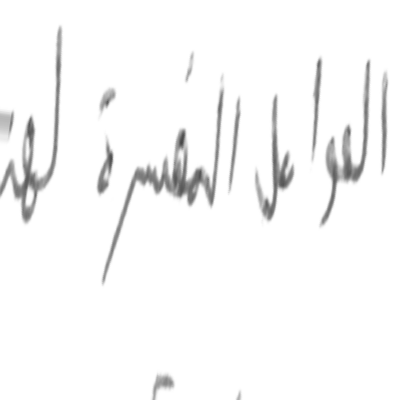 العوامل المفسرة لهذ